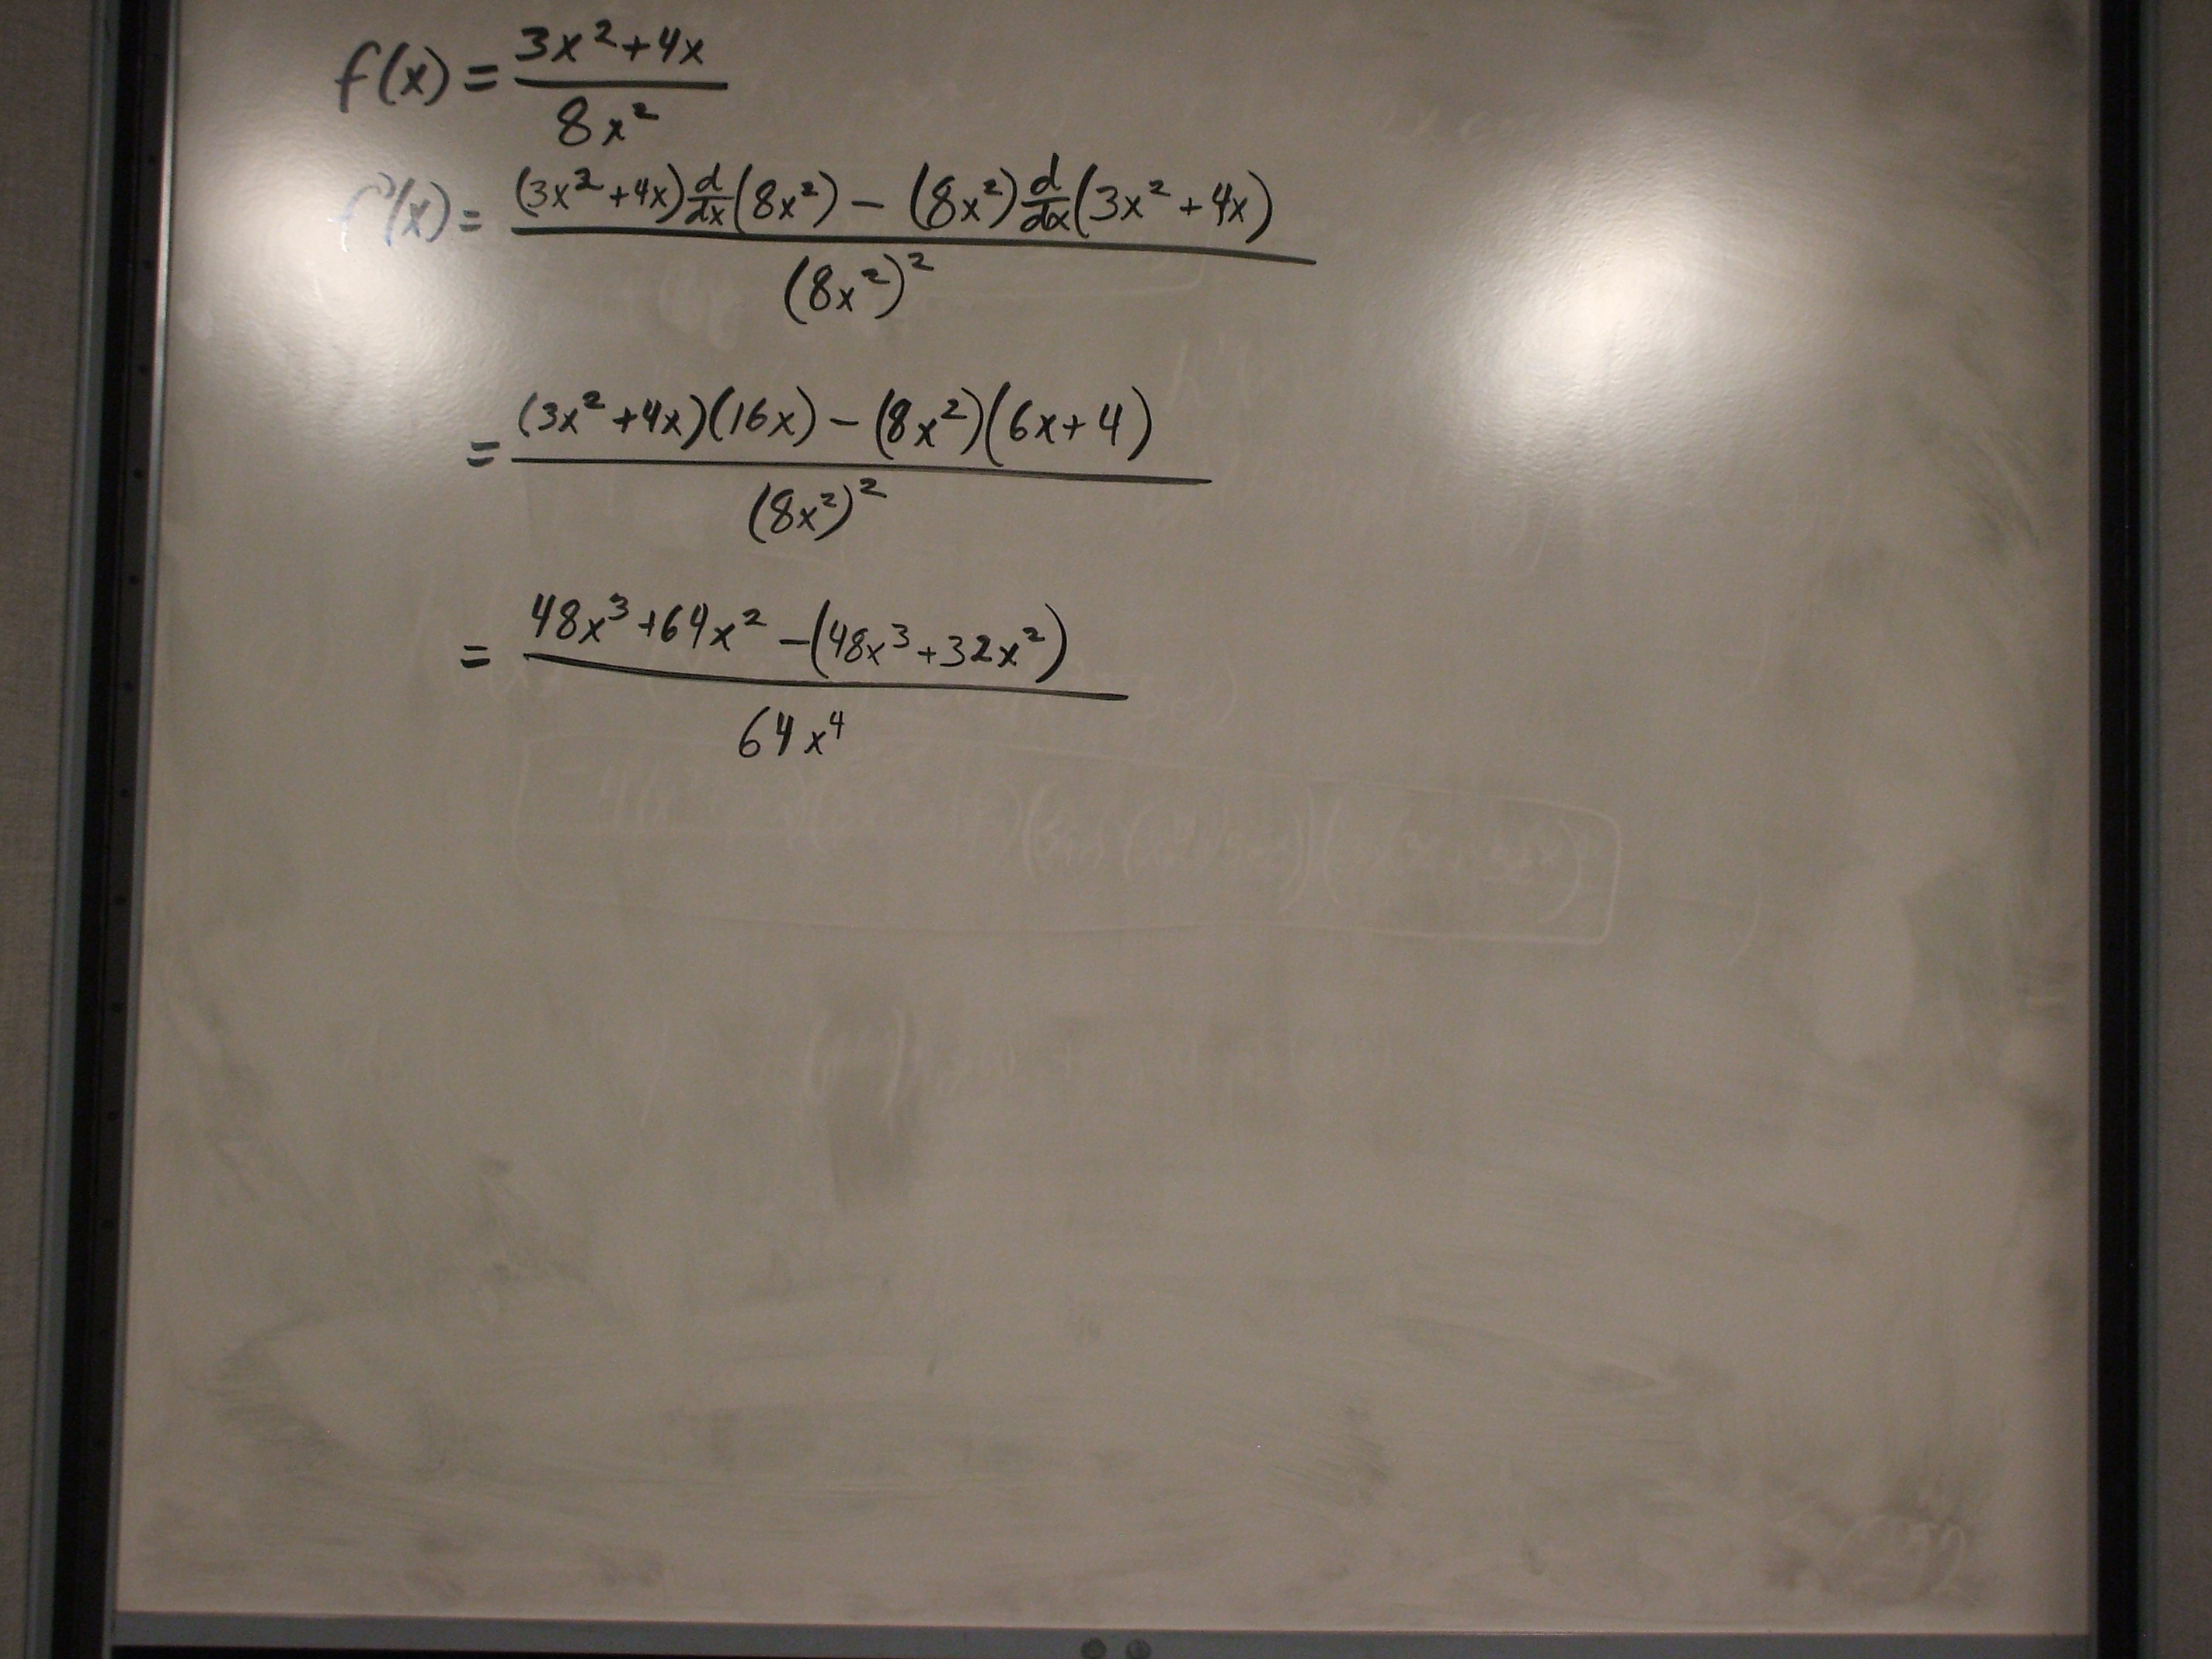 f(x) = (3x² + 4x) / (8x²)
f'(x) = ((3x² + 4x) d/dx (8x²) − (8x²) d/dx (3x² + 4x)) / (8x²)²
= ((3x² + 4x)(16x) − (8x²)(6x + 4)) / (8x²)²
= (48x³ + 64x² − (48x³ + 32x²)) / (64x⁴)